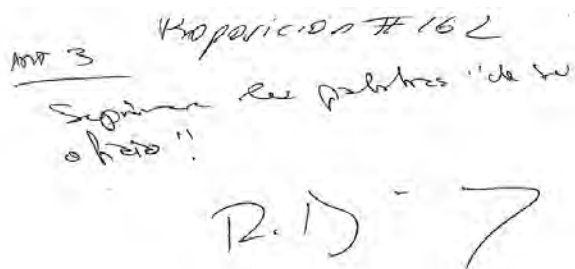 Proposición # 162
Art 3
Suprimir las palabras "de su
oficio".
R. D